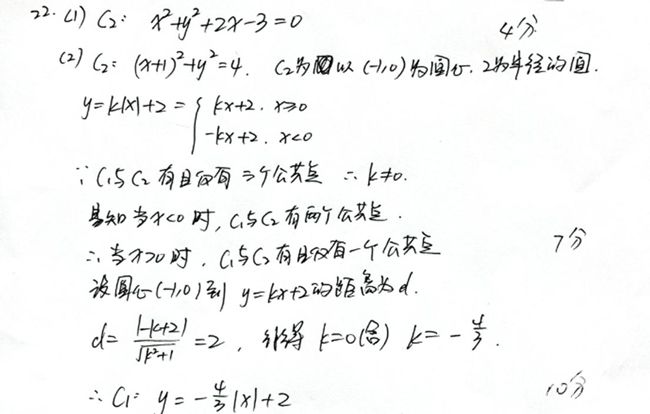 22. (1) C₂: x²+y²+2x-3=0 4分
(2) C₂: (x+1)²+y²=4. C₂为以(-1,0)为圆心, 2为半径的圆.
y=k|x|+2={kx+2, x≥0
-kx+2, x<0
∵C₁与C₂有且仅有三个公共点 ∴k≠0.
易知当x<0时, C₁与C₂有两个公共点.
∴当x>0时, C₁与C₂有且仅有一个公共点 7分
设圆心(-1,0)到 y=kx+2的距离为d.
d=|-k+2|/√(k²+1)=2, 解得 k=0(舍) k=-4/3.
∴C₁: y=-4/3|x|+2 10分